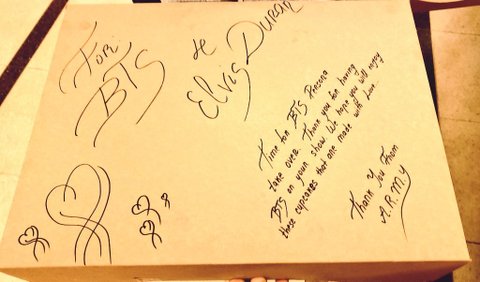 For
BTS
&
Elvis Duran
Time for BTS Persona
take over. Thank you for having
BTS on your show. We hope you will enjoy
these cupcakes that are made with Love.
Thank You From
A.R.M.Y